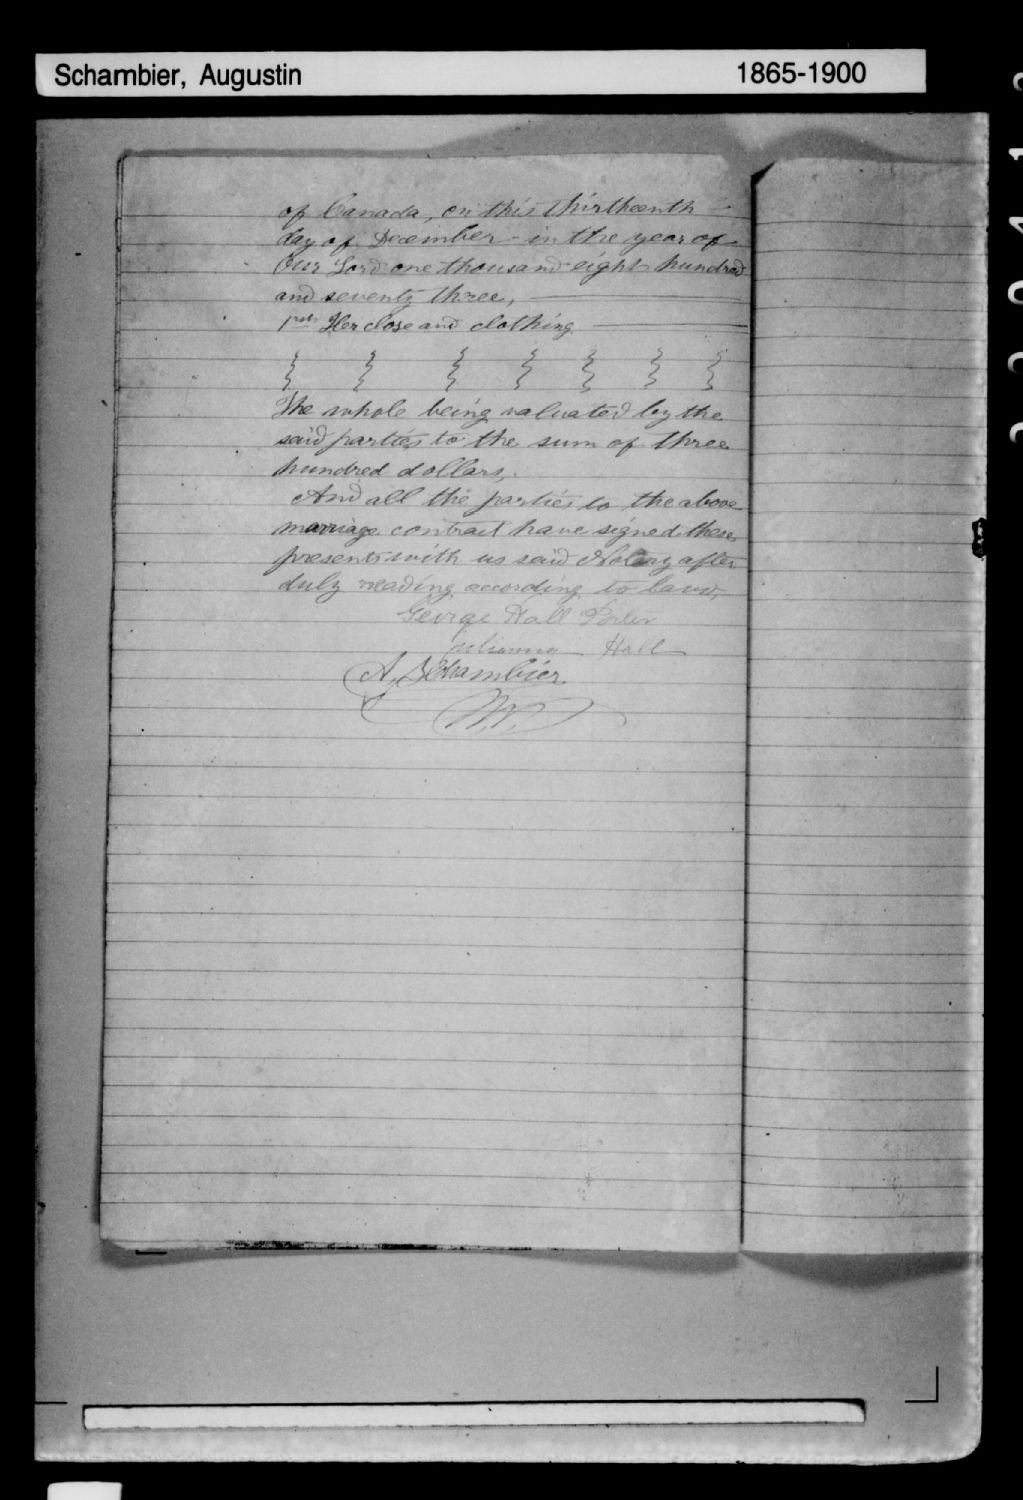 Schambier, Augustin 1865-1900
of Canada, on this thirtheenth
day of December - in the year of
Our Lord one thousand eight hundred
and seventy three,
Her close and clothing
The whole being valuated by the
said parties to the sum of three
hundred dollars,
And all the parties to the above
marriage contract have signed these
presents with us said Notary after
duly reading according to law,
George Hall
Julianna Hall
A. Schambier
N.P.